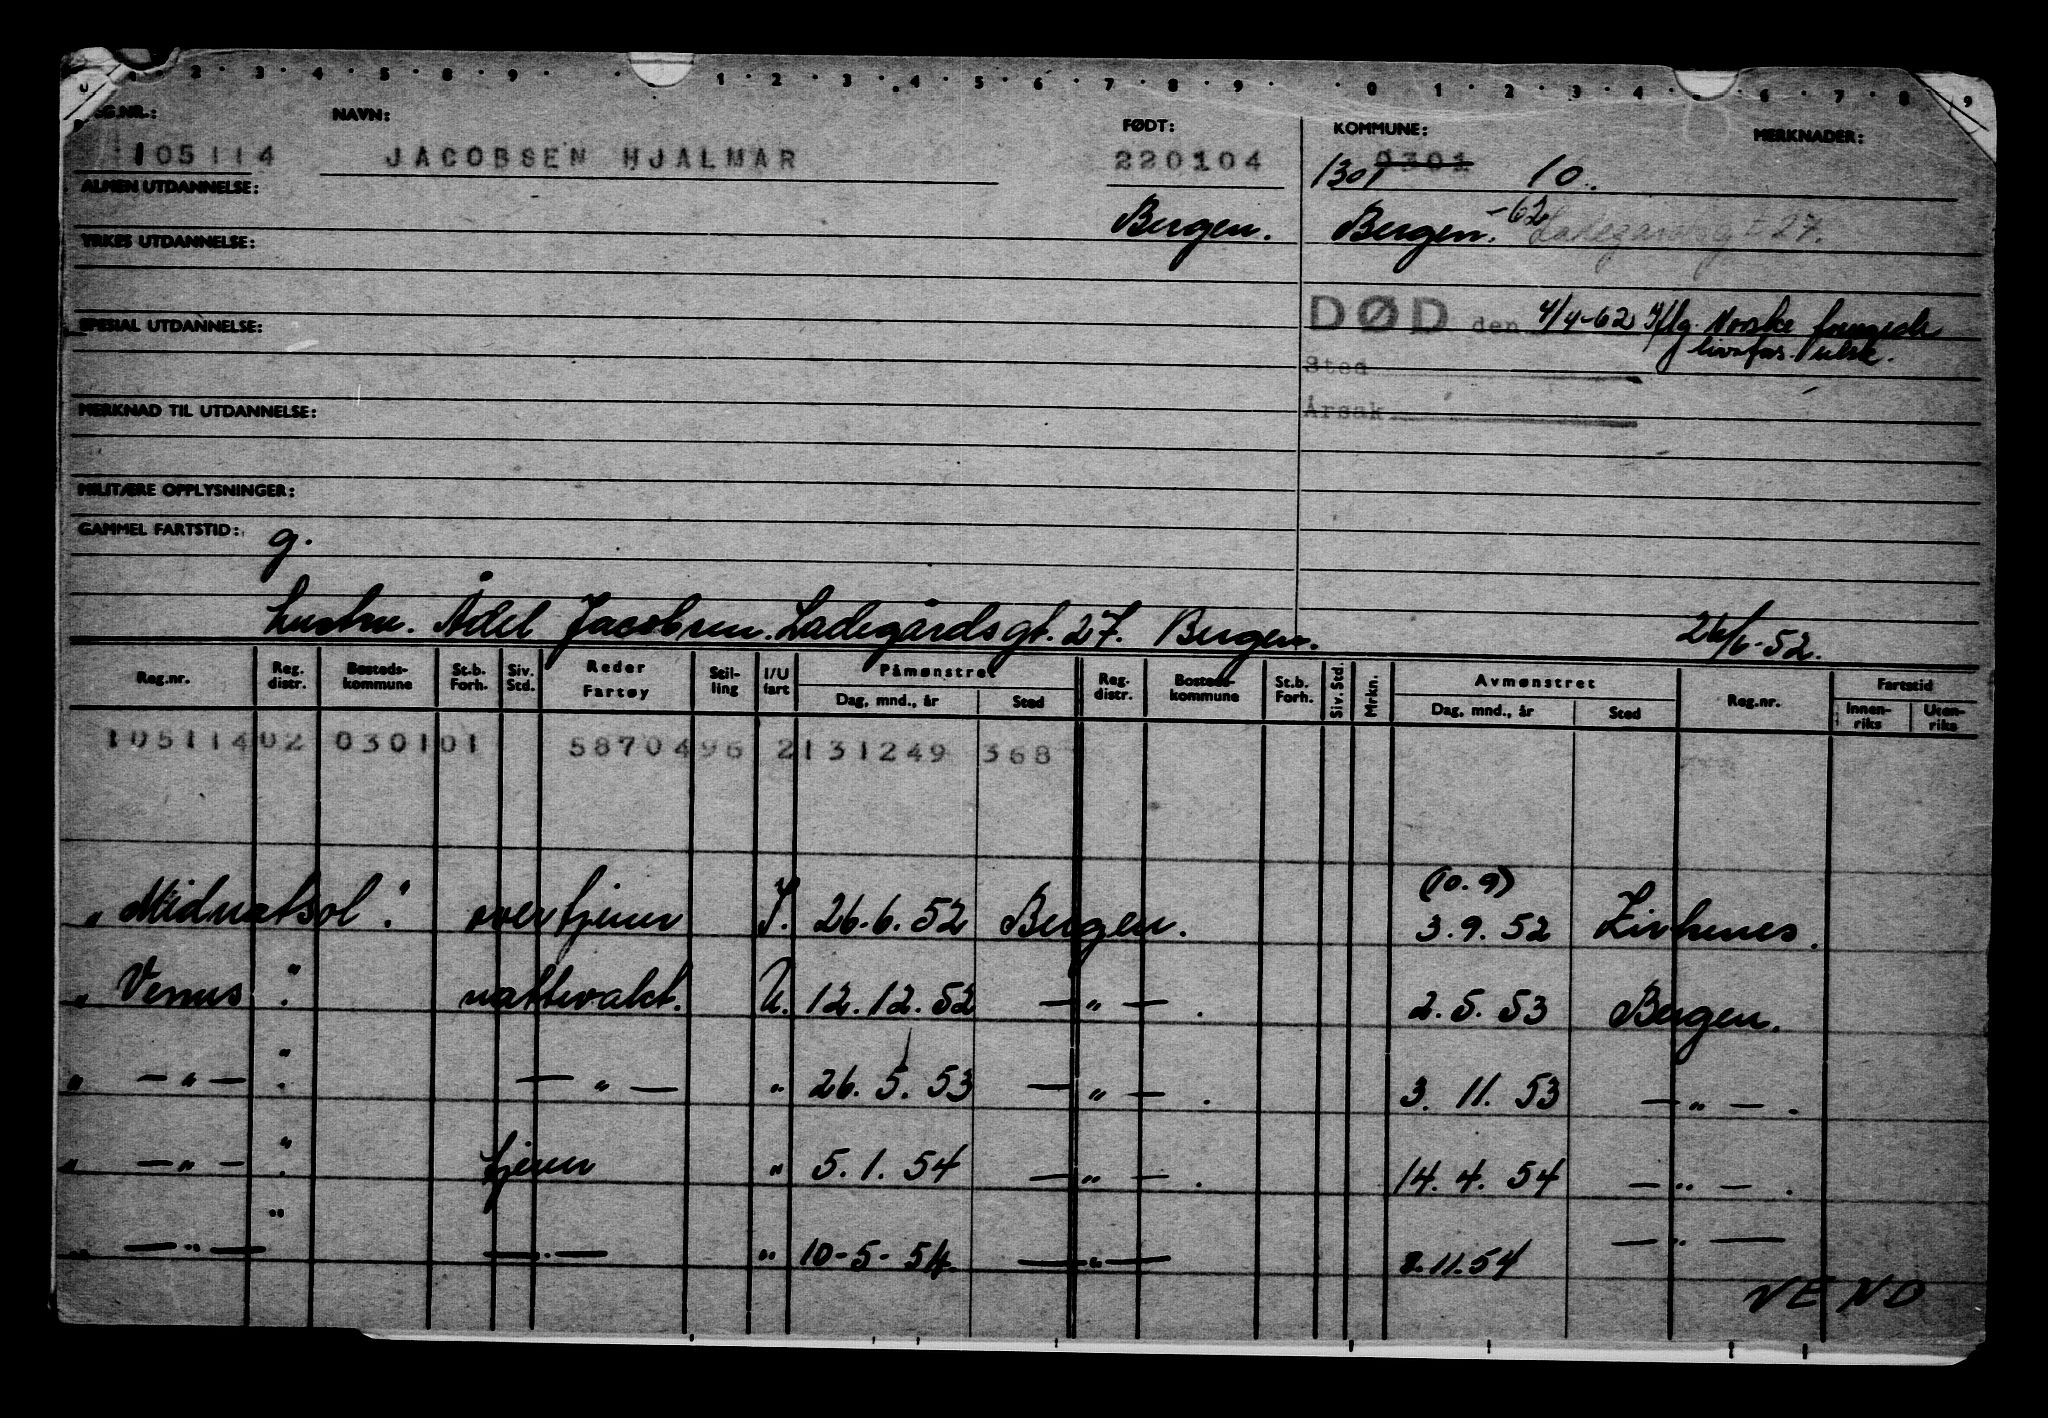 0 1 · 2 · 3 · 4 · 5 · 8 · 9 · · 1 · 2 · 3 · 4 · 5 · 6 · 7 · 8 · 9 · · 0 · 1 · 2 · 3 · 4 · 6 · 7 · 8 9
REG.NR.: NAVN: FØDT: KOMMUNE: MERKNADER:
105114 JACOBSEN HJALMAR 220104 1301 0301 10.
ALMEN UTDANNELSE:
Bergen. Bergen. -62 Ladegårdsgt 27.
YRKES UTDANNELSE:
DØD den 4/4-62 Iflg. Norske
SPESIAL UTDANNELSE:
livsfors.
Sted
MERKNAD TIL UTDANNELSE:
Årsak
MILITÆRE OPPLYSNINGER:
GAMMEL FARTSTID: g.
Hustru. Ådel Jacobsen. Ladegårdsgt. 27. Bergen. 26/6-52.
Reg.nr. Reg. distr. Bosteds-kommune St.b. Forh. Siv. Std. Reder Fartøy Stil-ling I/U fart Påmønstret Dag, mnd., år Sted Reg. distr. Bosteds-kommune St.b. Forh. Siv. Std. Mrkn. Avmønstret Dag, mnd., år Sted Reg.nr. Fartstid Innen-riks Uten-riks
105114 02 0301 01 5870 496 2 131249 368
(10.9)
"Midnatsol". overtjener I. 26.6.52 Bergen. 3.9.52 Kirkenes.
"Venus". nattevakt. U. 12.12.52 — " — . 2.5.53 Bergen.
" — " — ". — " — " 26.5.53 — " — . 3.11.53 — " — .
" — " — ". tjener " 5.1.54 — " — . 14.4.54 — " — .
" — " — " — " — " 10-5-54. — " — .11.54 — " —
VEND